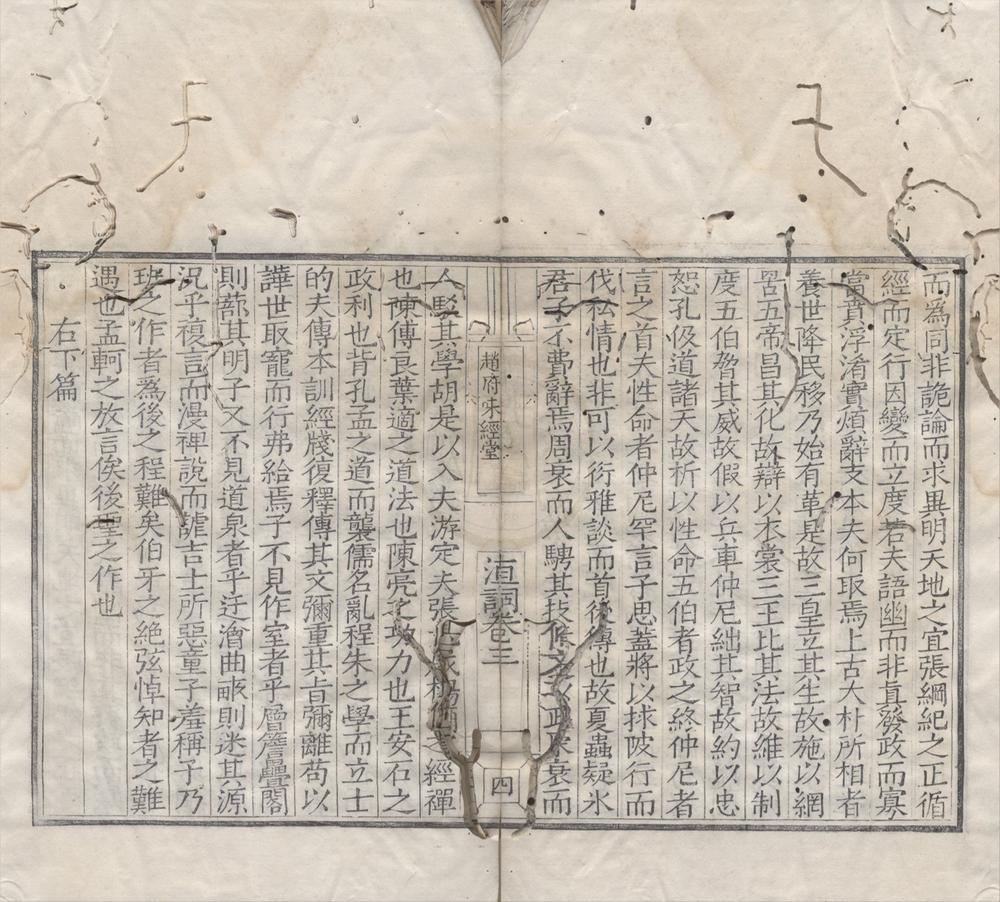 而為同非詭論而求異明天地之宜張綱紀之正循
經而定行因變而立度若夫語幽而非真發政而寡
當賁浮淆實煩辭支本夫何取焉上古大朴所相者
養世降民移乃始有革是故三皇立其生故施以網
罟五帝昌其化故辯以衣裳三王比其法故維以制
度五伯胷其威故假以兵車仲尼絀其智故約以忠
恕孔伋道諸天故析以性命五伯者政之終仲尼者
言之首夫性命者仲尼罕言子思蓋將以捄陂行而
伐私情也非可以衍雅談而首後傳也故夏蟲疑氷
君子不費辭焉周衰而人騁其技脩文以政衰而
趙府味經堂
洹詞卷三
四
人駁其學胡是以入夫游定夫張楊之經禪
也陳傅良葉適之道法也陳亮之功力也王安石之
政利也背孔孟之道而襲儒名亂程朱之學而立士
的夫傳本訓經牋復釋傳其文彌重其旨彌離苟以
譁世取寵而行弗給焉子不見作室者乎層簷疊閣
則蔀其明子又不見道泉者乎迂澮曲畎則迷其源
况乎複言而漫裨說而誰吉士所惡童子羞稱子乃
班之作者為後之程難矣伯牙之絶弦悼知者之難
遇也孟軻之放言俟後聖之作也
右下篇